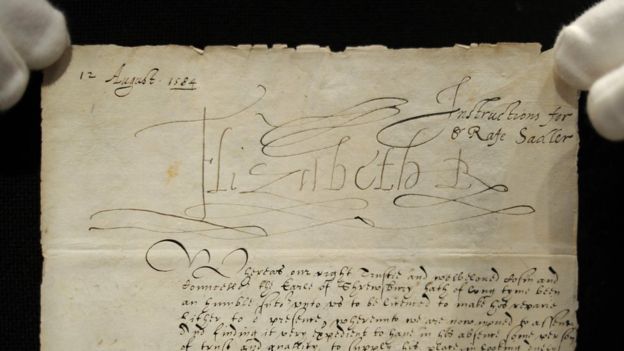 12 August . 1584
Instructions for
Sr Rafe Sadler
Elizabeth R
Whereas our right Trustie and welbeloved Cosin and
Councellor the Earle of Shrewsbury hath of long tyme been
an humble sutor unto us to be licenced to make his repaire
hither to or presence, wherunto we are now moved to assent
and finding it very expedient to have in his absence some person
of trust and quallity to supply his place in